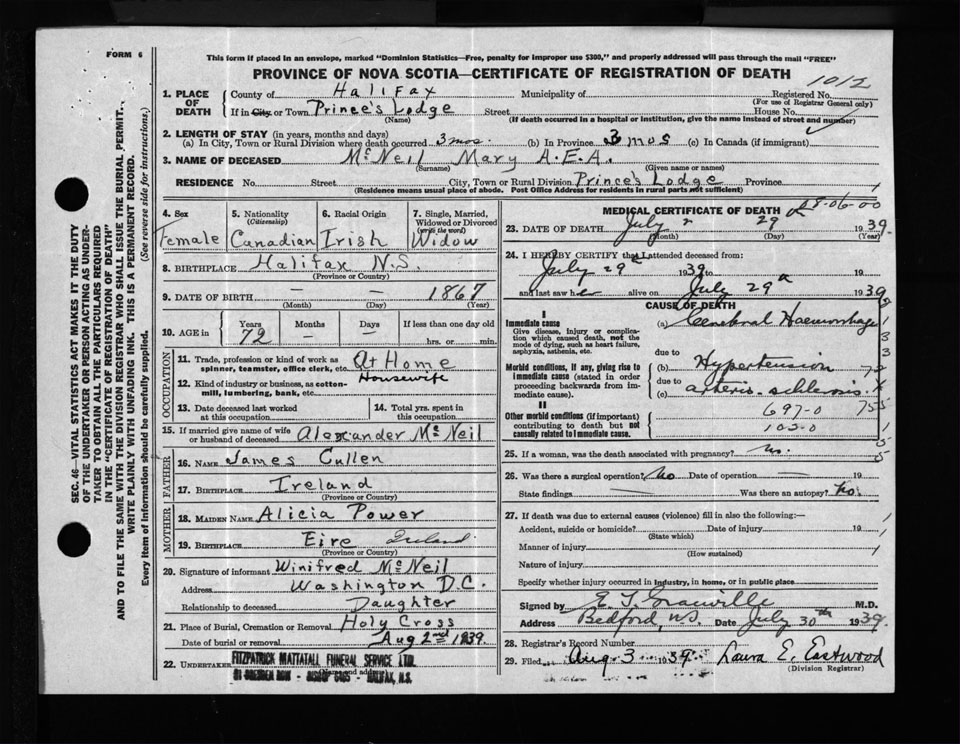 FORM 6
This form if placed in an envelope, marked "Dominion Statistics—Free, penalty for improper use $300," and properly addressed will pass through the mail "FREE"
PROVINCE OF NOVA SCOTIA—CERTIFICATE OF REGISTRATION OF DEATH
1012
1. PLACE OF DEATH
County of Halifax Municipality of Registered No.
(For use of Registrar General only)
If in City or Town Prince's Lodge Street House No.
(Name) (If death occurred in a hospital or institution, give the name instead of street and number)
2. LENGTH OF STAY (in years, months and days)
(a) In City, Town or Rural Division where death occurred 3 mos. (b) In Province 3 mos (c) In Canada (if immigrant)
3. NAME OF DECEASED McNeil Mary A.E.A.
(Surname) (Given name or names)
RESIDENCE No. Street City, Town or Rural Division Prince's Lodge Province
(Residence means usual place of abode. Post Office Address for residents in rural parts not sufficient)
4. Sex
Female
5. Nationality
(Citizenship)
Canadian
6. Racial Origin
Irish
7. Single, Married, Widowed or Divorced
(write the word)
Widow
8. BIRTHPLACE Halifax N.S.
(Province or Country)
9. DATE OF BIRTH — — 1867
(Month) (Day) (Year)
10. AGE in
Years Months Days If less than one day old
72 — — hrs. or min.
OCCUPATION
11. Trade, profession or kind of work as spinner, teamster, office clerk, etc. At Home
Housewife
12. Kind of industry or business, as cotton-mill, lumbering, bank, etc.
13. Date deceased last worked at this occupation
14. Total yrs. spent in this occupation
15. If married give name of wife or husband of deceased Alexander McNeil
FATHER
16. NAME James Cullen
17. BIRTHPLACE Ireland
(Province or Country)
MOTHER
18. MAIDEN NAME Alicia Power
19. BIRTHPLACE Eire Ireland
(Province or Country)
20. Signature of informant Winifred McNeil
Address Washington D.C.
Relationship to deceased Daughter
21. Place of Burial, Cremation or Removal Holy Cross
Date of burial or removal Aug 2nd 1939
22. UNDERTAKER FITZPATRICK MATTATALL FUNERAL SERVICE LTD.
(Name and address)
HALIFAX, N.S.
MEDICAL CERTIFICATE OF DEATH
08-06-00
23. DATE OF DEATH July 29 1939
(Month) (Day) (Year)
24. I HEREBY CERTIFY that I attended deceased from:
July 29 1939 to July 29
and last saw her alive on 1939
CAUSE OF DEATH
I
Immediate cause
Give disease, injury or complication which caused death, not the mode of dying, such as heart failure, asphyxia, asthenia, etc.
(a) Cerebral Haemorrhage
due to
Morbid conditions, if any, giving rise to immediate cause (stated in order proceeding backwards from immediate cause).
(b) Hypertension
due to
(c)
II
Other morbid conditions (if important) contributing to death but not causally related to immediate cause.
697-0
102-0
25. If a woman, was the death associated with pregnancy? No.
26. Was there a surgical operation? No Date of operation 19
State findings — Was there an autopsy? No.
27. If death was due to external causes (violence) fill in also the following:—
Accident, suicide or homicide? Date of injury 19
(State which)
Manner of injury
(How sustained)
Nature of injury
Specify whether injury occurred in industry, in home, or in public place
Signed by E T Granville M.D.
Address Bedford, N.S. Date July 30th 1939.
28. Registrar's Record Number
29. Filed Aug. 3 1939. Laura E. Eastwood
(Division Registrar)
SEC. 46—VITAL STATISTICS ACT MAKES IT THE DUTY
OF THE UNDERTAKER OR PERSON ACTING AS UNDER-
TAKER TO OBTAIN ALL THE PARTICULARS REQUIRED
IN THE "CERTIFICATE OF REGISTRATION OF DEATH"
AND TO FILE THE SAME WITH THE DIVISION REGISTRAR WHO SHALL ISSUE THE BURIAL PERMIT.
WRITE PLAINLY WITH UNFADING INK. THIS IS A PERMANENT RECORD.
Every item of information should be carefully supplied. (See reverse side for instructions.)